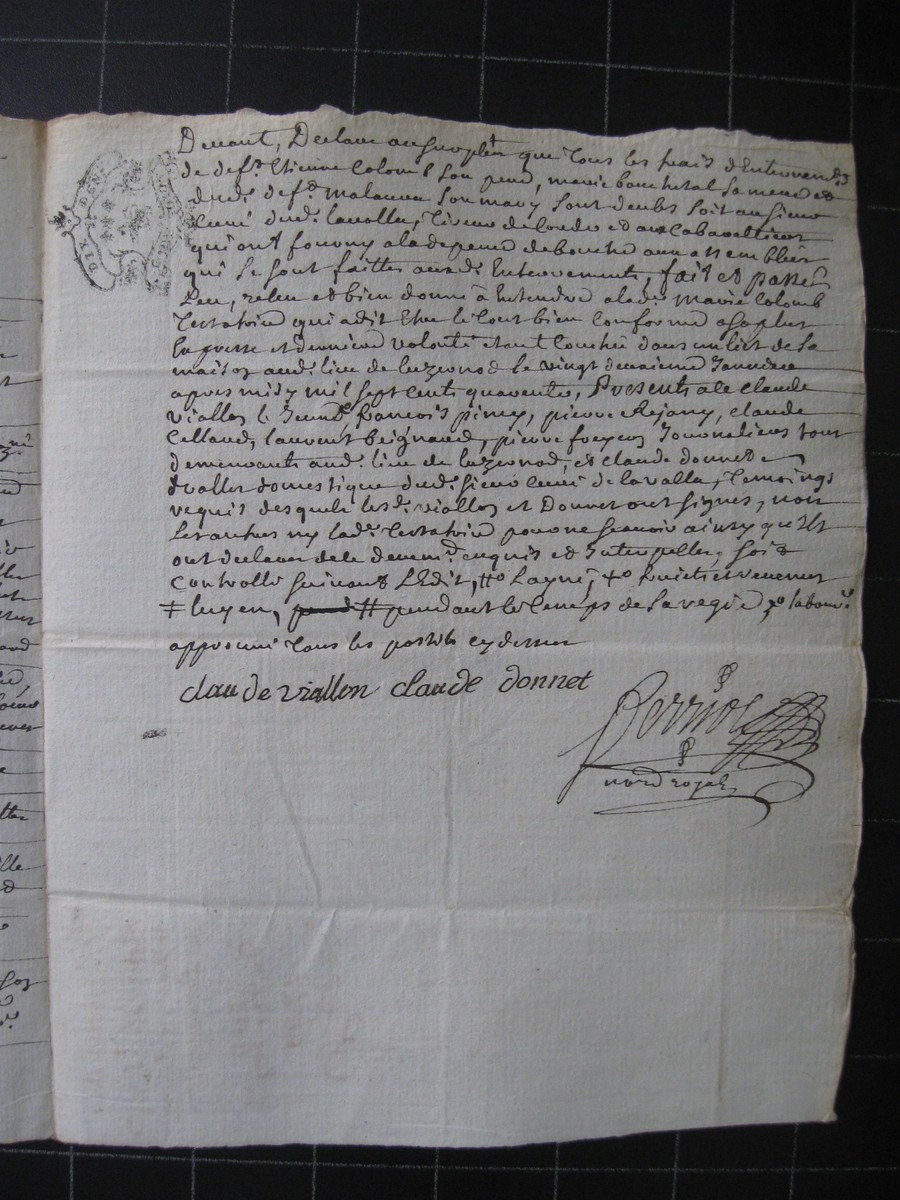 Devant, Declare au surplus que tous les frais d'Enterrem.ts
de deft. Etienne Colomb son pere, marie bouchetal sa mere et
dud. deft. malaure son mary sont deubs soit au sieur
Curé dud. lavalla, Livreur de et aux Cabarettiers
qui ont fourny a la depence de bouche aux assemblées
qui se sont faittes auxd. Enterrements, fait et passé
Leu, releu et bien donné à Entendre a lad. Marie Colomb
Testatrice qui a dit Etre le tout bien Conforme a sa plus
Expresse et derniere volonté etant couchée dans un lict de sa
maison aud. lieu de luzernod le vingt deuxieme Janvier
apres midy mil sept cents quarente, Presents a ce Claude
viallon le Jeune, francois piney, pierre Rejany, claude
Celland, laurent beignaud, pierre Journaliers tous
demeurants aud. lieu de luzernod, et claude donnet
vallet domestique dud. sieur Curé de lavalla, Temoings
requis desquels lesd. viallon et Donnet ont signés, non
Les autres ny lad. Testatrice pour ne scavoir ainsy qu'Ils
ont declaré de ce deuem.t enquis et Interpellés, soit
Controllé suivant L'Edit, # Layné, fruicts et revenus
≠ luyen, # pendant le temps de la regie
approuvé tous les postils cy dessus
claude viallon claude donnet
Perriol
nore royal
DIX DEN